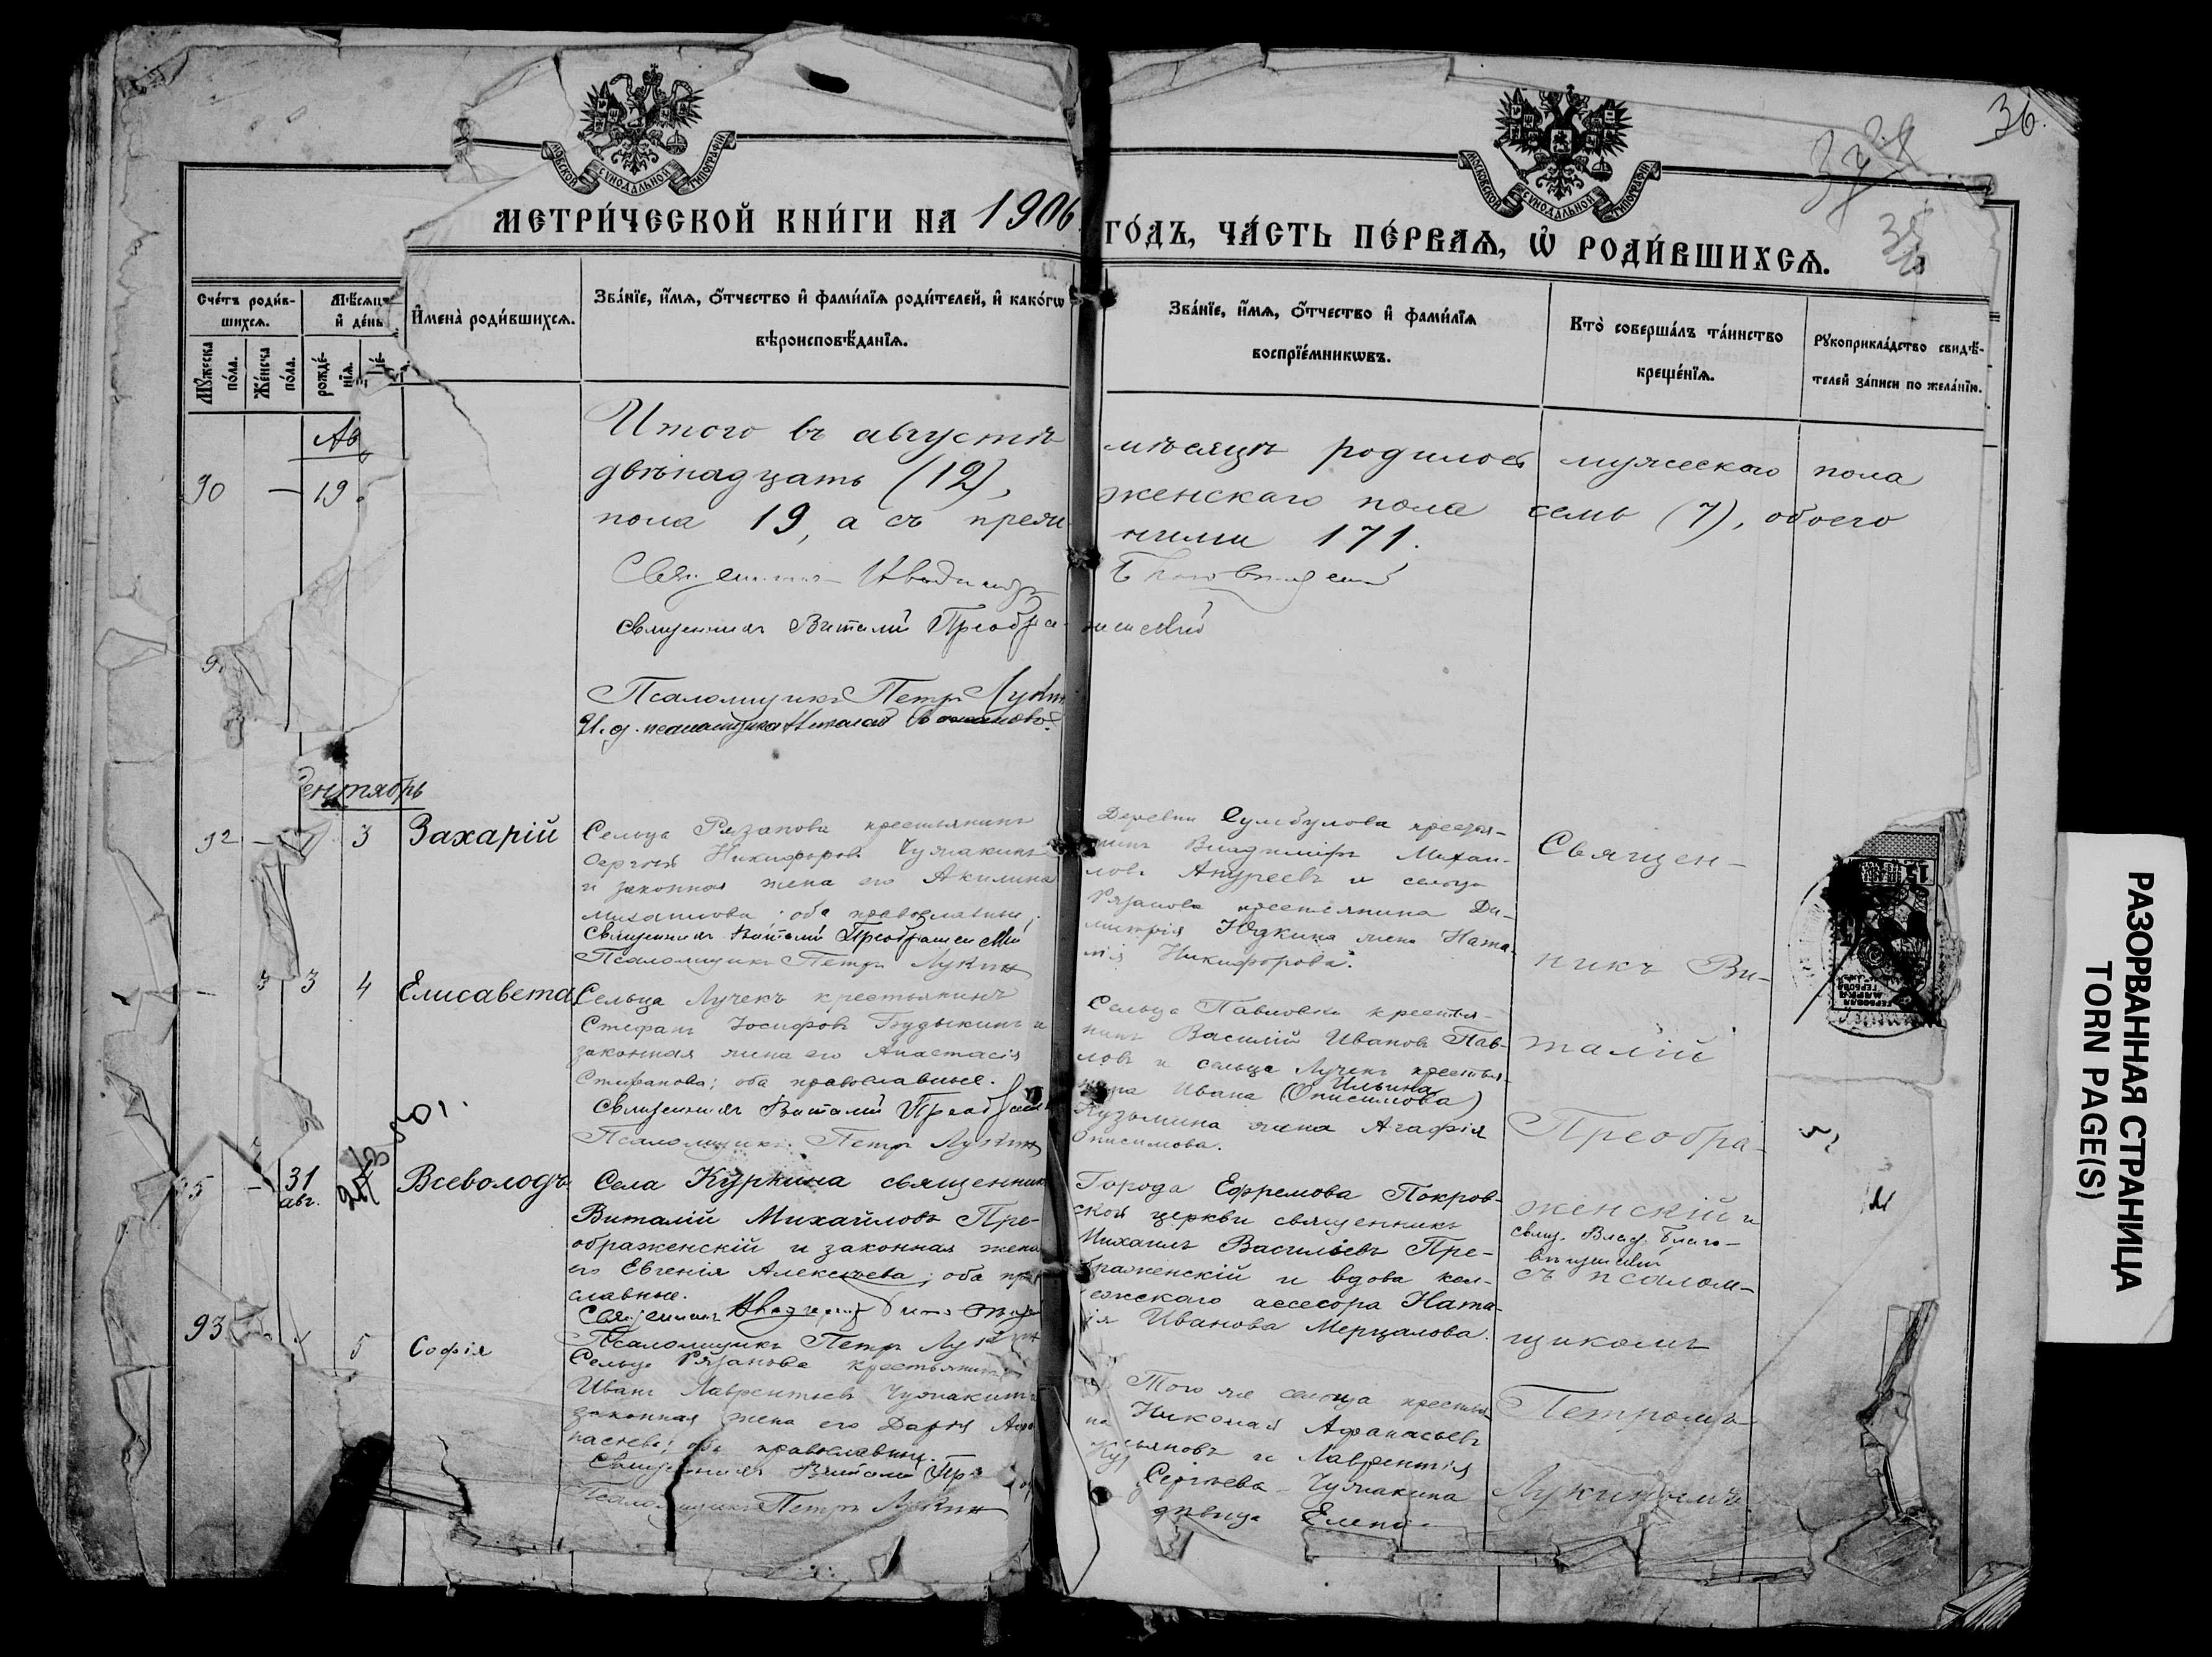 36.
МОСКОВСКОЙ СѴНОДАЛЬНОЙ ТИПОГРАФІИ
МОСКОВСКОЙ СѴНОДАЛЬНОЙ ТИПОГРАФІИ
МЕТРИ́ЧЕСКОЙ КНИ́ГИ НА 1906
ГО́ДЪ, ЧА́СТЬ ПЕ́РВАѦ, Ѽ РОДИ́ВШИХСѦ.
Сче́тъ роди́в-
шихсѧ.
Мꙋжеска
по́ла.
Же́нска
по́ла.
Мѣ́сѧцъ
и҆ де́нь
рожде́-
нїѧ.
И҆мена̀ роди́вшихсѧ.
Зва́нїе, и҆́мѧ, ѻ҆́тчество и҆ фами́лїѧ роди́телей, и҆ како́гѡ
вѣроисповѣ́данїѧ.
Зва́нїе, и҆́мѧ, ѻ҆́тчество и҆ фами́лїѧ
воспрїе́мникѡвъ.
Кто̀ соверша́лъ та́инство
креще́нїѧ.
Рꙋкоприкла́дство свидѣ́-
телей за́писи по жела́нїю.
Ав
90 — 19
Итого въ августѣ
двѣнадцать (12),
пола 19, а съ преж
мѣсяцѣ родилось мужескаго пола
женскаго пола семь (7), обоего
ними 171.
Священникъ
священникъ Виталій Преображенскій
Псаломщикъ Петръ Лукин
И. д. псаломщика Николай
Сентябрь
92 — 3 Захарій
Сельца Рязанова крестьянинъ
Сергѣй Никифоровъ Чумакинъ
и законная жена его Акилина
Михайлова; оба православные;
священникъ Виталій Преображенскій
Псаломщикъ Петръ Лукин
Деревни Сумбулова крестья-
нинъ Владиміръ Михаи-
ловъ Андреевъ и сельца
Рязанова крестьянина Ди-
митрія Юдкина жена Ната-
лія Никифорова.
— 3 4 Елисавета
Сельца Лучекъ крестьянинъ
Стефанъ Іосифовъ Будыкинъ и
законная жена его Анастасія
Стефанова; оба православные.
священникъ Виталій Преображен
Псаломщикъ Петръ Лукин
Сельца Павловки крестья-
нинъ Василій Ивановъ Пав-
ловъ и сельца Лучекъ крестья-
Ильина
Ивана (Онисимова)
Кузьмина жена Агафія
Онисимова.
5 — 31
авг.
Всеволодъ
Села Куркина священник
Виталій Михайловъ Пре-
ображенскій и законная жена
его Евгенія Алексѣева; оба пра
славные.
Священникъ
Псаломщикъ Петръ Лукин
Города Ефремова Покров-
ской церкви священникъ
Михаилъ Васильевъ Пре-
браженскій и вдова кол-
ежскаго ассесора Ната-
ія Иванова Мерцалова.
93 5 Софія
Сельца Рязанова крестьянинъ
Иванъ Лаврентьевъ Чумакинъ
законная жена его Дарія Афа
насьева; оба православные.
Священникъ Виталій Пр
Псаломщикъ Петръ Лукин
Того же сельца крестья
на Николай Афанасьевъ
и Лаврентія
Сергѣева Чумакина
дѣвица Елена
Священ-
никъ Ви-
талій
Преобра-
женскій и
свящ. Влад. Благо-
вѣщенскій
съ псалом-
щикомъ
Петромъ
Лукинымъ
РАЗОРВАННАЯ СТРАНИЦА
TORN PAGE(S)